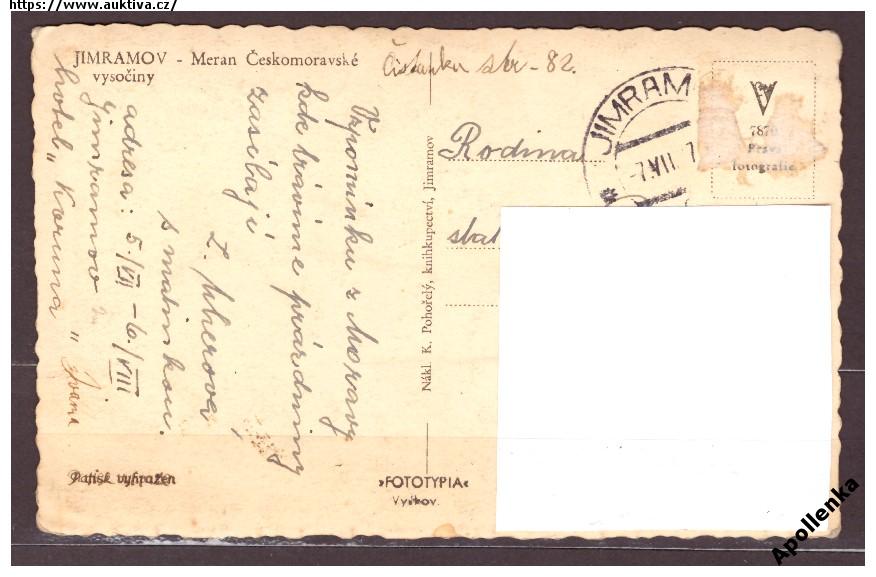 https://www.auktiva.cz/
JIMRAMOV - Meran Českomoravské
vysočiny
str - 82.
Vzpomínku z Moravy
kde trávíme prázdniny
zasílají
L. Uherová
s maminkou.
adresa: 5./VII - 6./VIII
Jimramov
hotel „Koruna"
Ivana
Nákl. K. Pohořelý, knihkupectví, Jimramov
Patisk vyhrazen
»FOTOTYPIA«
Vyškov.
JIMRAM
-7.VII. 7
7870
Pravá
fotografie
Rodina
Apollenka